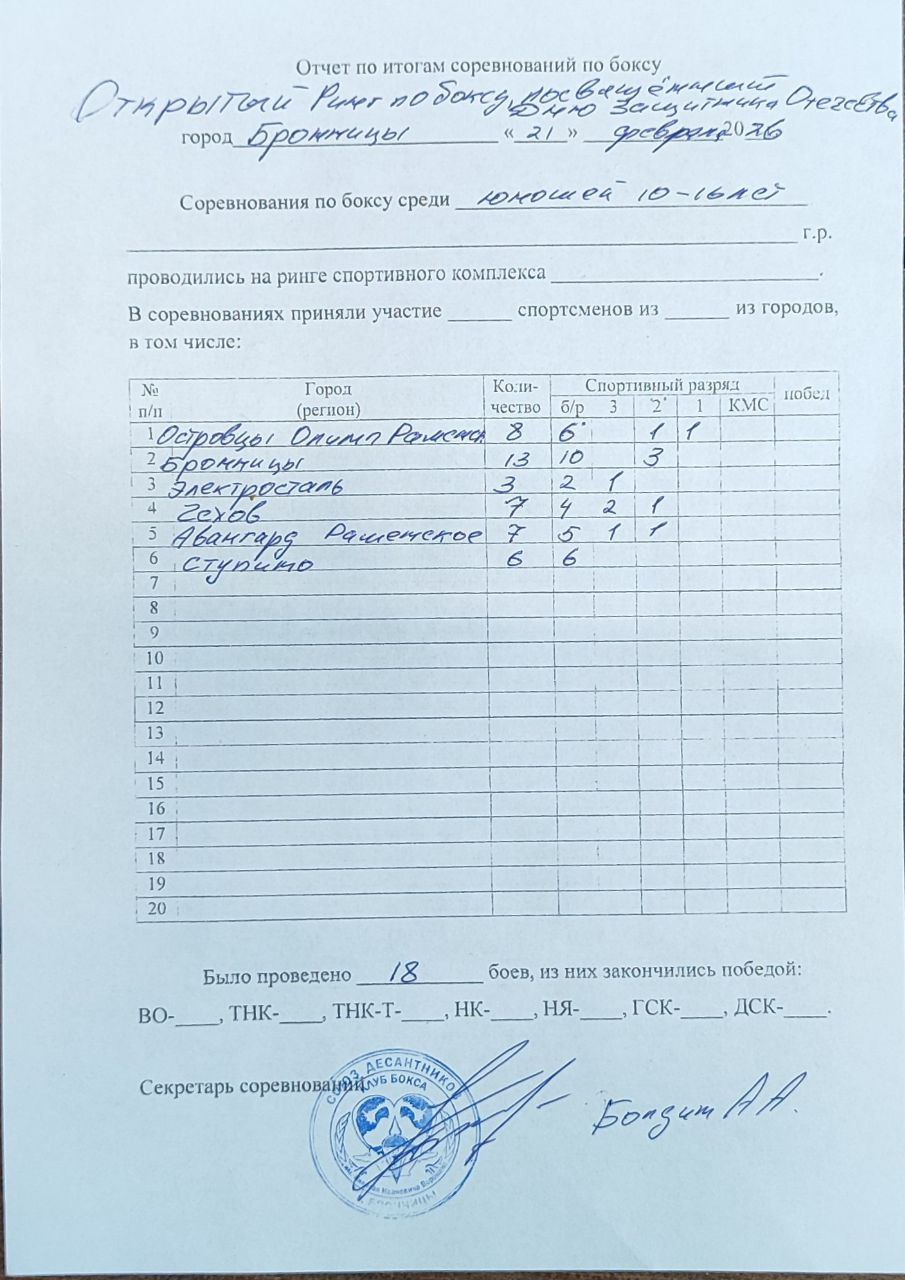 Отчет по итогам соревнований по боксу
Открытый Ринг по боксу, посвящённый
Дню Защитника Отечества
город Бронницы « 21 » февраля 2026
Соревнования по боксу среди юношей 10-16 лет
г.р.
проводились на ринге спортивного комплекса .
В соревнованиях приняли участие спортсменов из из городов,
в том числе:
№ п/п Город (регион) Коли-чество Спортивный разряд побед
б/р 3 2 1 КМС
1 Островцы Олимп Раменск 8 6 1 1
2 Бронницы 13 10 3
3 Электросталь 3 2 1
4 Чехов 7 4 2 1
5 Авангард Раменское 7 5 1 1
6 Ступино 6 6
7
8
9
10
11
12
13
14
15
16
17
18
19
20
Было проведено 18 боев, из них закончились победой:
ВО-____, ТНК-____, ТНК-Т-____, НК-____, НЯ-____, ГСК-____, ДСК-____.
Секретарь соревнований
СОЮЗ ДЕСАНТНИКОВ
КЛУБ БОКСА
БРОННИЦЫ
Болдин А А.